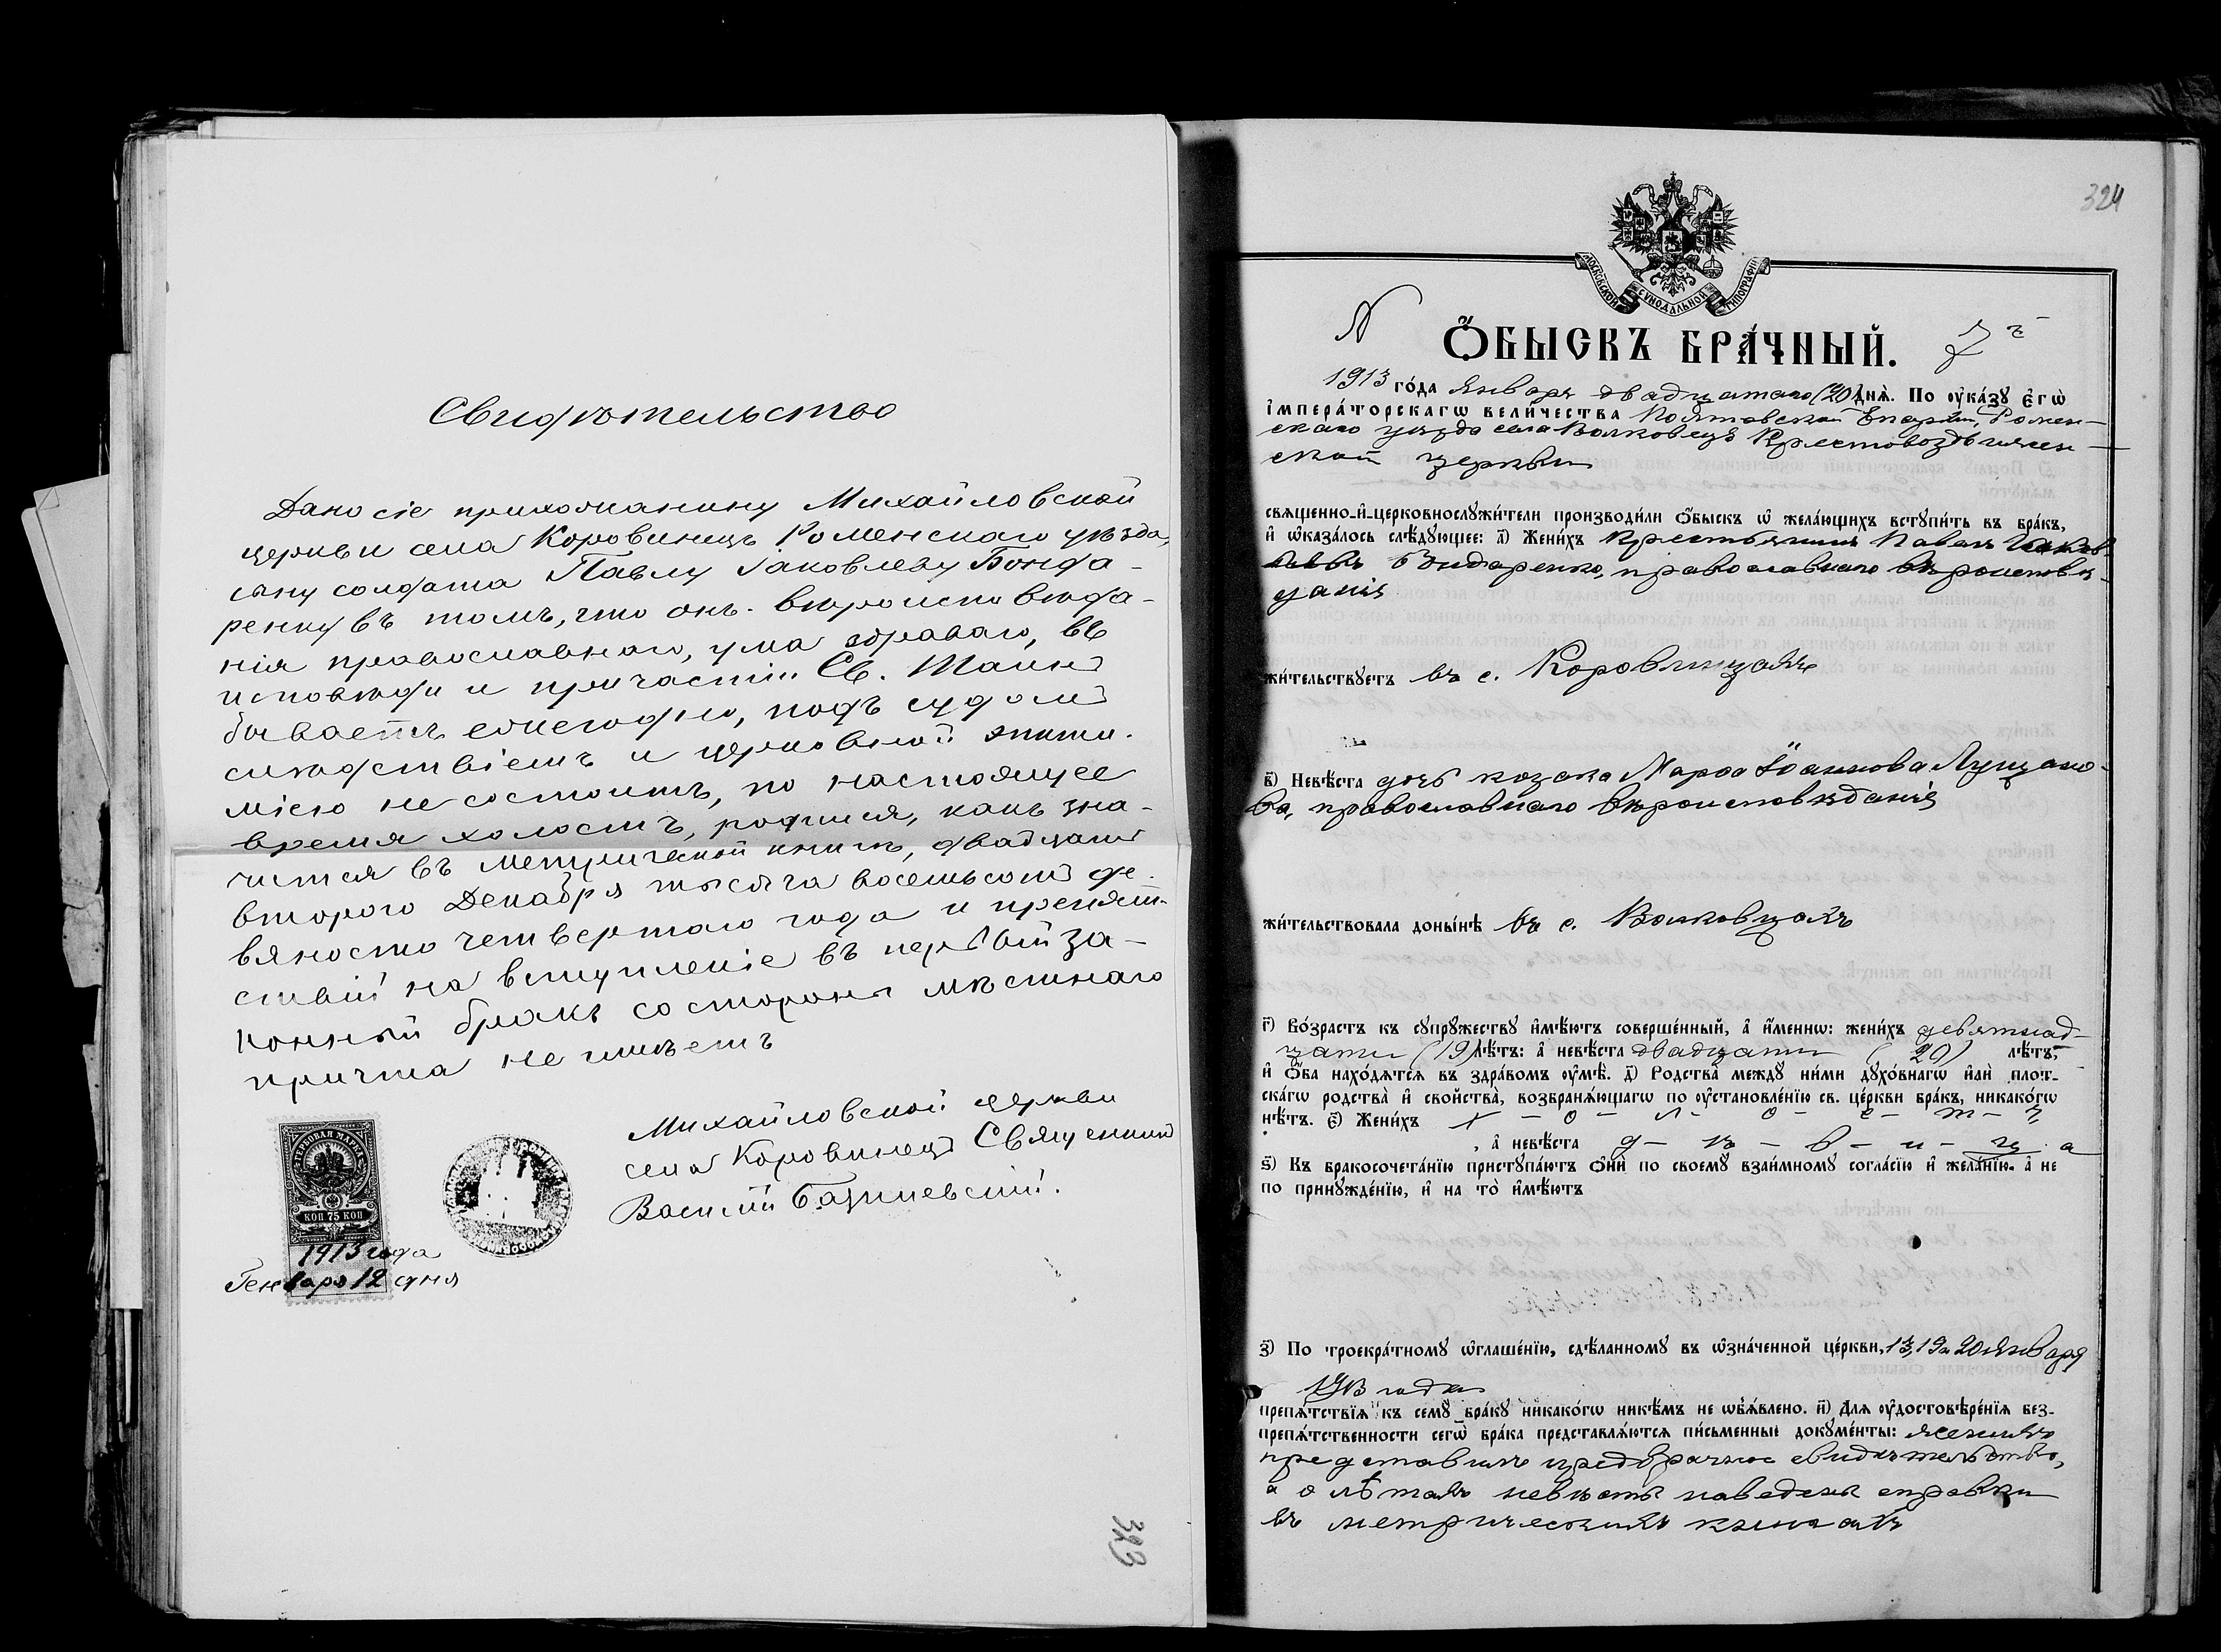 Свидѣтельство
Дано сіе прихожанину Михайловской
церкви села Коровинецъ Роменскаго уѣзда,
сыну солдата Павлу Іаковлеву Бонда-
ренку въ томъ, что онъ вѣроисповѣда-
нія православнаго, ума здраваго, въ
исповѣди и причастіи Св. Таинъ
бываетъ ежегодно, подъ судомъ
слѣдствіемъ и церковной эпити-
міею не состоитъ, по настоящее
время холостъ, родился, какъ зна-
чится въ метрической книгѣ, двадцать
второго Декабря тысяча восемьсотъ де-
вяносто четвертаго года и препят-
ствій на вступленіе въ первый за-
конный бракъ со стороны мѣстнаго
причта не имѣетъ
Михайловской церкви
села Коровинецъ Священникъ
Василій
ГЕРБОВАЯ МАРКА
КОП 75 КОП
1913 года
Генваря 12 дня
323
324
МОСКОВСКОЙ СѴНОДАЛЬНОЙ ТИПОГРАФІИ
N
Ѻ҆БЫСКЪ БРА́ЧНЫЙ. 7й
1913 го́да Января двадцатаго (20) дня̀. По ᲂу҆ка́зꙋ є҆гѡ̀
і҆мпера́торскагѡ вели́чества Полтавской Епархіи, Ромен-
скаго уѣзда села Волковецъ Крестовоздвижен-
ской церкви
свѧщенно-и҆-церковнослꙋжи́тели производи́ли ѻ҆́быскъ ѡ҆ жела́ющихъ встꙋпи́ть въ бра́къ,
и҆ ѡ҆каза́лось слѣ́дꙋющее: а҃) Жени́хъ Крестьянинъ Павелъ Іаков-
левъ Бондаренко, православнаго вѣроисповѣ-
данія
жи́тельствꙋетъ въ с. Коровинцахъ
в҃) Невѣ́ста дочь козака Марѳа Іоаннова Луцако-
ва, православнаго вѣроисповѣданія
жи́тельствовала доны́нѣ въ с. Волковцахъ
г҃) Во́зрастъ къ сꙋпрꙋ́жествꙋ и҆мѣ́ютъ соверше́нный, а҆ и҆́меннѡ: жени́хъ девятнад-
цати (19) лѣ́тъ: а҆ невѣ́ста двадцати (20) лѣ́тъ,
и҆ ѻ҆́ба нахо́дѧтсѧ въ здра́вомъ ᲂу҆мѣ̀. д҃) Родства̀ междꙋ̀ ни́ми дꙋхо́внагѡ и҆лѝ пло́т-
скагѡ родства̀ и҆ сво́йства̀, возбранѧ́ющагѡ по ᲂу҆становле́нїю св. це́ркви бра́къ, никако́гѡ
нѣ́тъ. є҃) Жени́хъ х-о-л-о-с-т-ъ
, а҆ невѣ́ста д-ѣ-в-и-ц-а
ѕ҃) Къ бракосочета́нїю пристꙋпа́ютъ ѻ҆нѝ по своемꙋ̀ взаи́мномꙋ согла́сїю и҆ жела́нїю, а҆ не
по принꙋжде́нїю, и҆ на то̀ и҆мѣ́ютъ
з҃) По троекра́тномꙋ ѡ҆глаше́нїю, сдѣ́ланномꙋ въ ѡ҆зна́ченной це́ркви, 13, 19 и 20 Января
1913 года
препѧ́тствїѧ къ семꙋ̀ бра́кꙋ никако́гѡ никѣ́мъ не ѡ҆б̾ѧ́влено. и҃) Длѧ̀ ᲂу҆достовѣре́нїѧ без-
препѧ́тственности сегѡ̀ бра́ка представлѧ́ютсѧ пи́сьменныѧ докꙋме́нты: женихъ
представилъ предбрачное свидѣтельство,
а о лѣтахъ невѣсты наведены справки
въ метрическихъ книгахъ